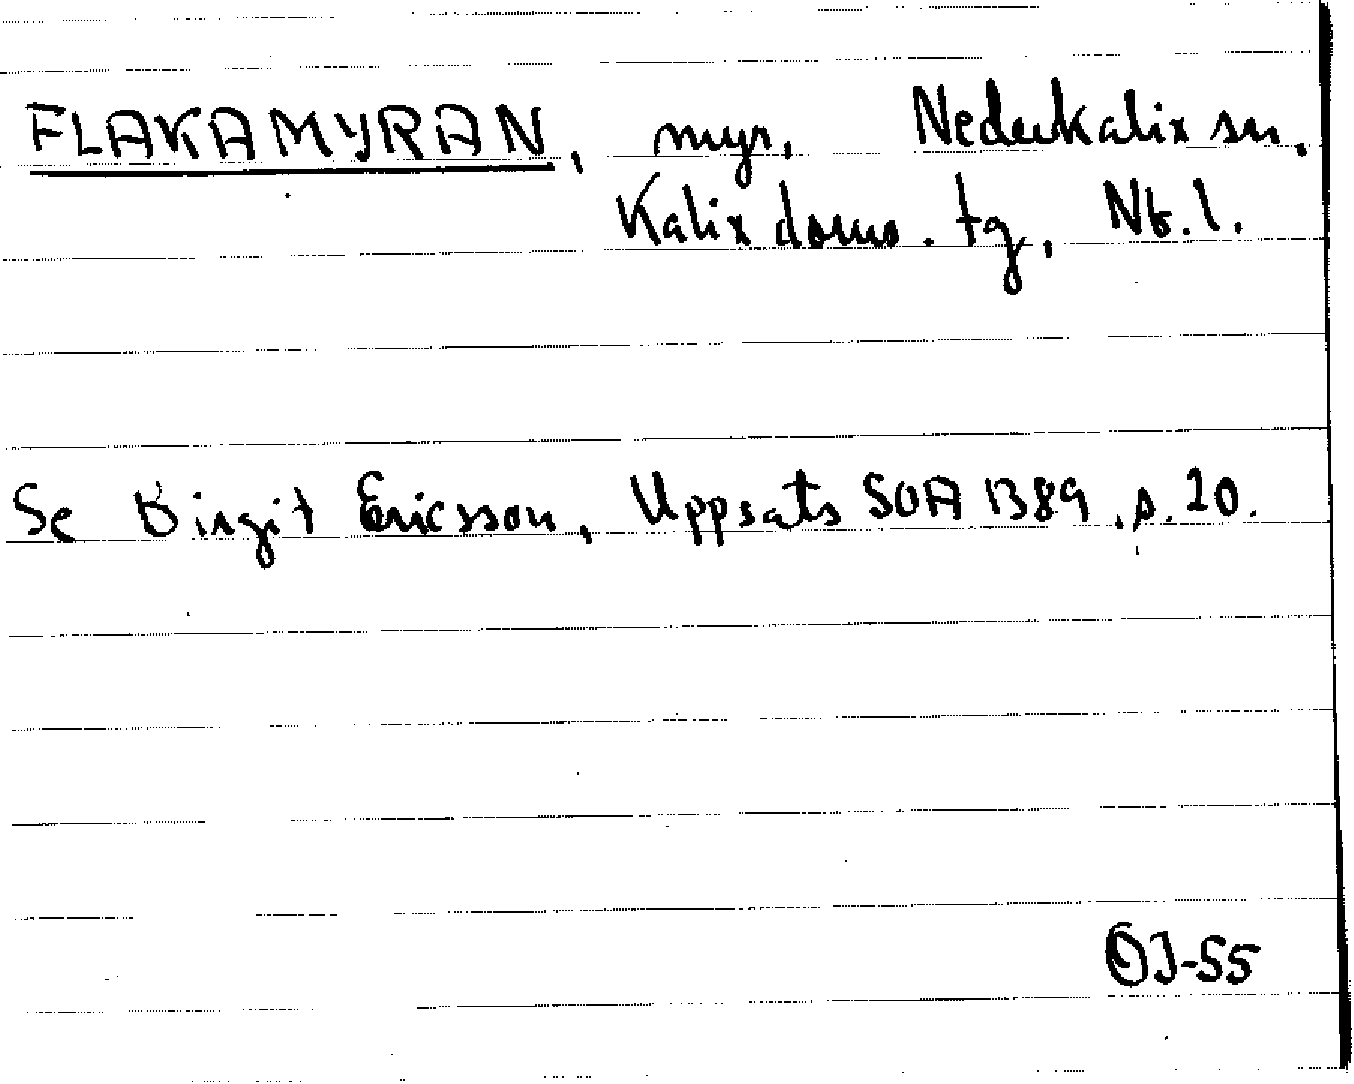 FLAKAMYRAN, myr, Nederkalix sn.
Kalix doms. tg, Nb. l.
Se Birgit Ericsson, Uppsats SOA 1389, s. 20.
OJ-55